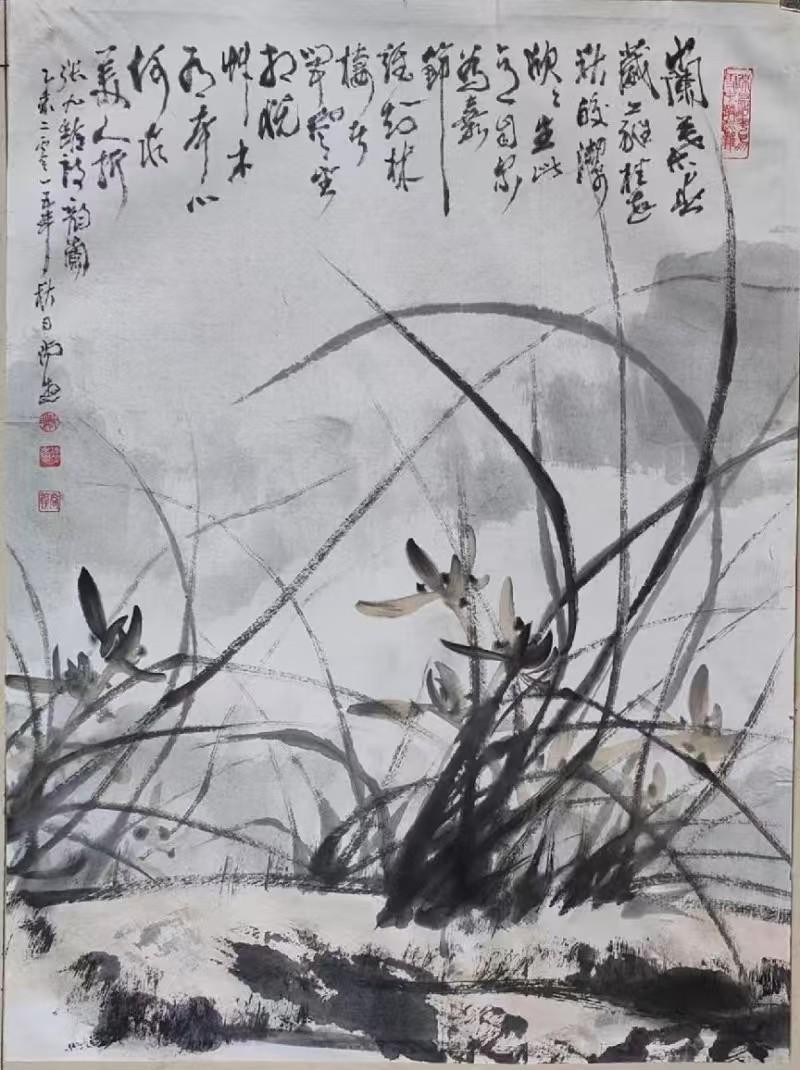 蘭葉春
葳蕤桂花
秋皎潔
欣々生此
意自爾
為嘉
節
誰知林
棲者
聞風坐
相悅
艸木
有本心
何求
美人折
張九齡詩韵蘭
乙未二零一五年秋日